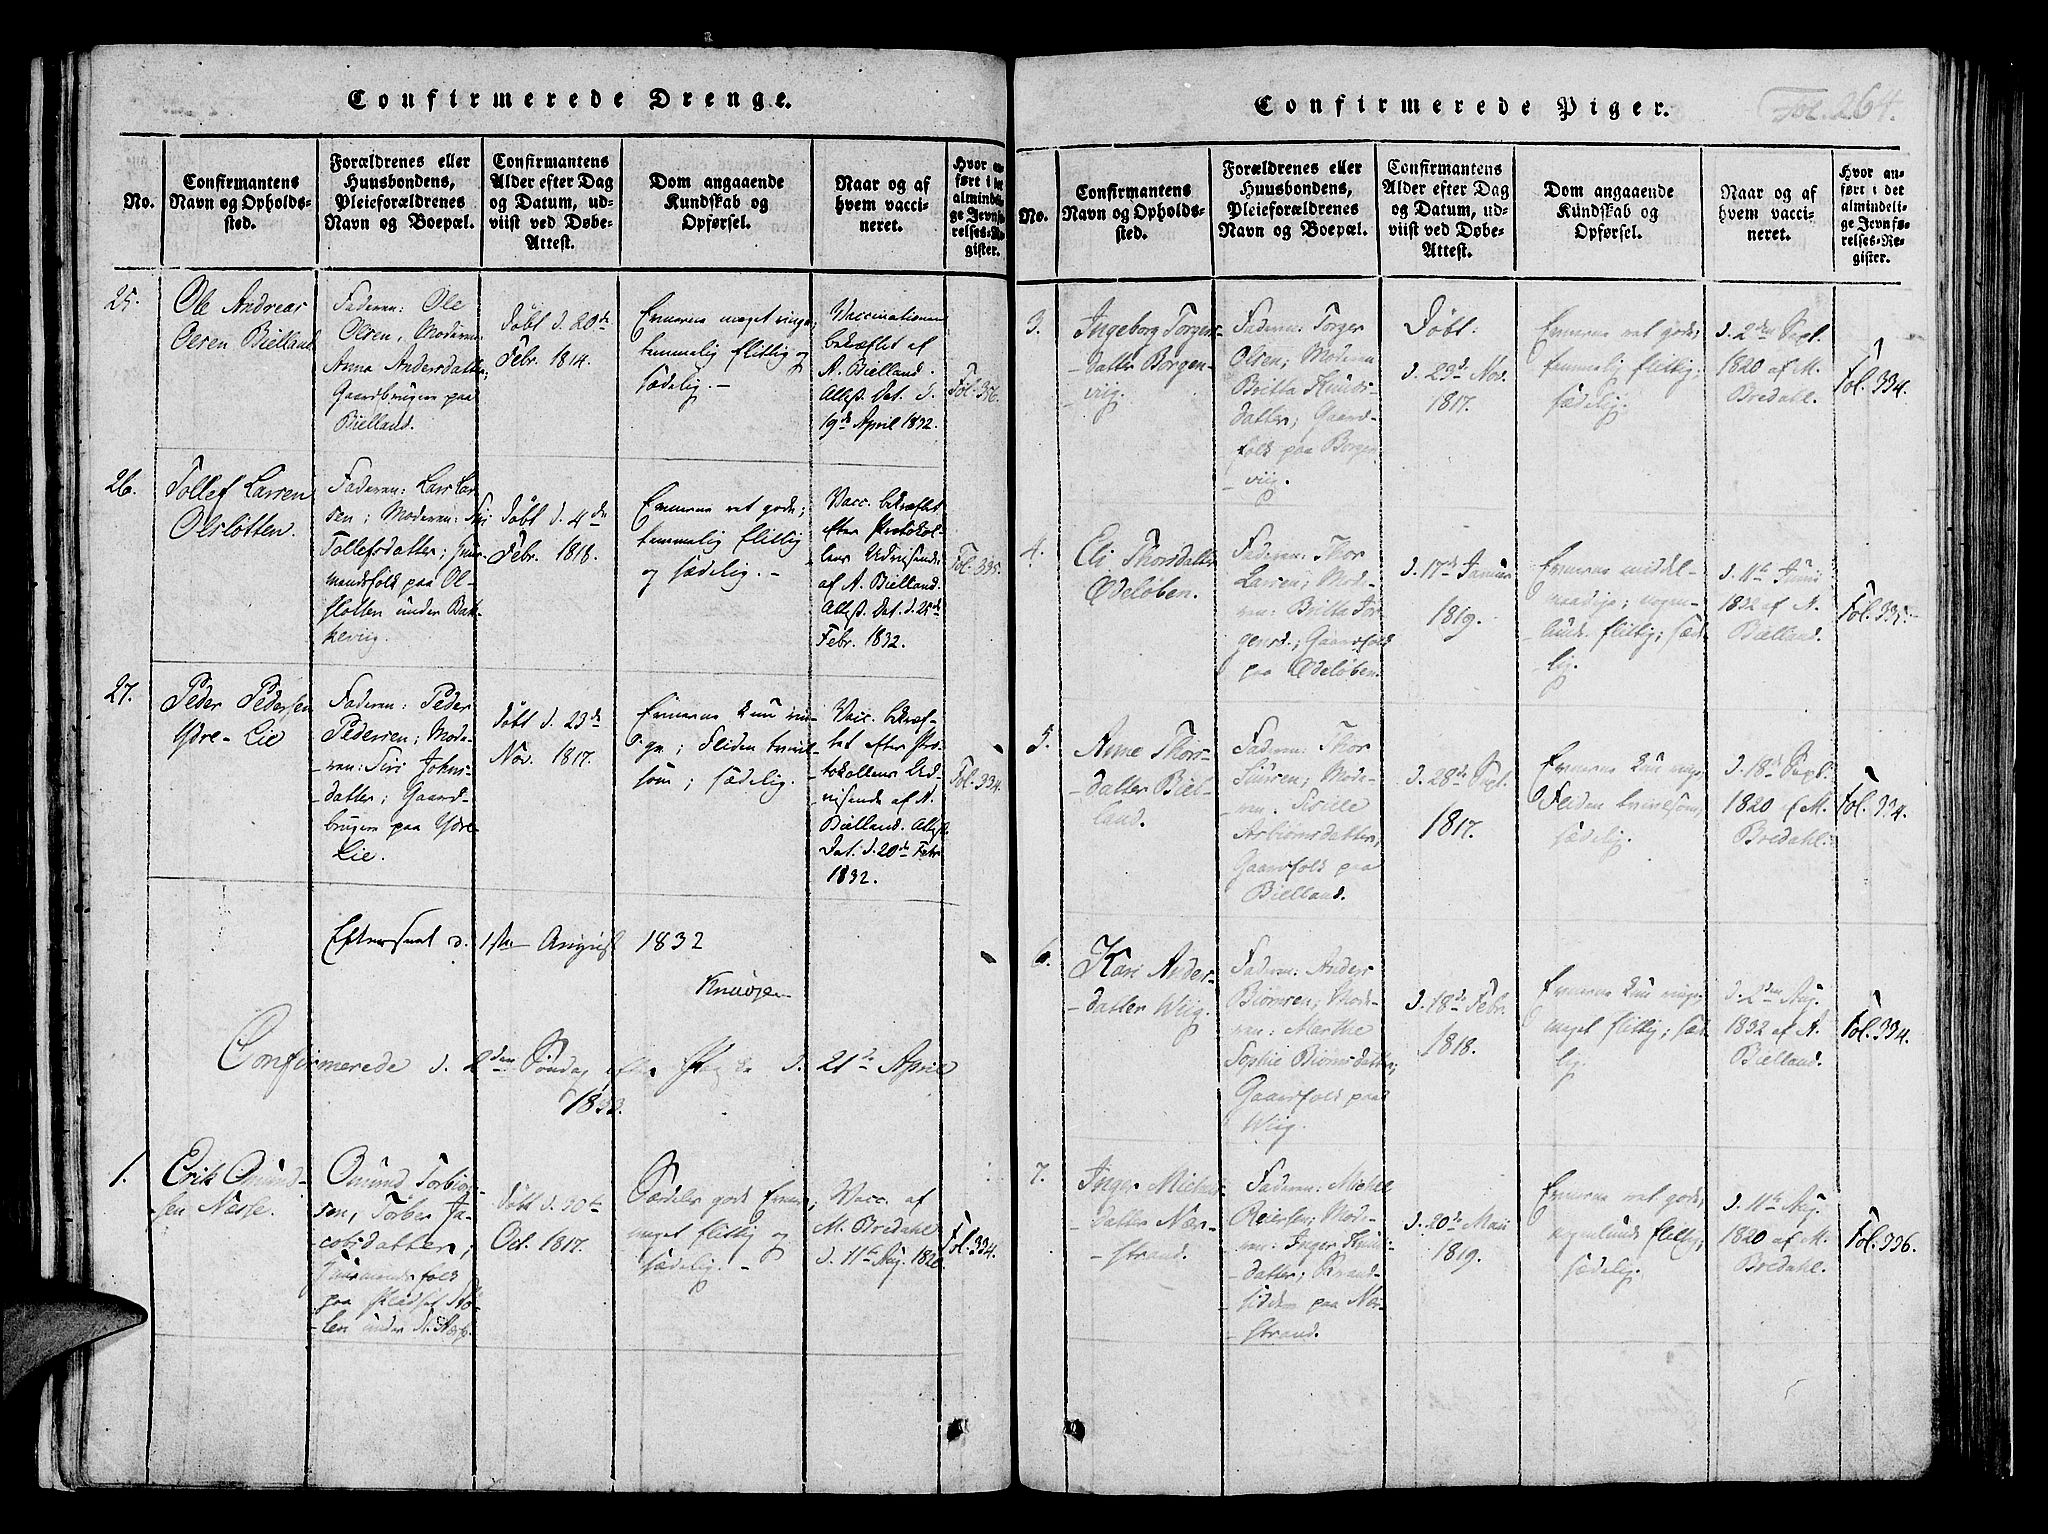 Confirmerede Drenge.
No.
Confirmantens
Navn og Opholds-
sted.
Forældrenes eller
Huusbondens,
Pleieforældrenes
Navn og Boepæl.
Confirmantens
Alder efter Dag
og Datum, ud-
viist ved Døbe-
Attest.
Dom angaaende
Kundskab og
Opførsel.
Naar og af
hvem vacci-
neret.
Hvor an-
ført i det
almindeli-
ge Jevnfø-
relses-Re-
gister.
25.
Ole Andreas
Olsen Bielland
Faderen: Ole
Olsen, Moderen
Anna Andersdatter;
Gaardbrugere paa
Bielland.
Døbt d. 20de
Febr. 1814.
Evnerne meget ringe;
temmelig flittig og
sædelig. -
Vaccinationen
bekræftet af
A. Bielland.
Attest. Dat. d.
19de April 1832.
Fol. 356.
26.
Tollef Larsen
Olsløtten.
Faderen: Lars Lar-
sen; Moderen: Siri
Tollefsdatter; Huus-
mandsfolk paa Ol-
sløtten under Bak-
kevig.
Døbt d. 4de
Febr. 1818.
Evnerne ret gode;
temmelig flittig
og sædelig. -
Vacc. bekræftet
efter Protokol-
lens Udvisende
af A. Bielland.
Attest. Dat. d. 25de
Febr. 1832.
Fol. 335.
27.
Peder Pedersen
Ydre-Lie
Faderen: Peder
Pedersen; Mode-
ren: Siri Johns-
datter; Gaard-
brugere paa Ydre-
Lie.
Døbt d. 23de
Nov. 1817.
Evnerne kun rin-
ge; Fliden tvivl-
som; sædelig.
Vacc. bekræf-
tet efter Pro-
tokollens Ud-
visende af A.
Bielland. Attest.
Dat. d. 20de Febr.
1832.
Fol. 334.
Efterseet d. 1ste August 1832
Confirmerede d. 2den Søndag efter d. 21de April
1833.
1.
Erik Omund-
sen Nesse.
Omund Torbiørn-
sen, Torber Ja-
cobsdatter;
Huusmandsfolk
paa Pladset
under N. Næsse.
Døbt d. 30te
Oct. 1817.
Særdeles gode Evner,
meget flittig og
sædelig. -
Vacc. af
M. Bredahl
d. 11te Aug. 1820
Fol. 334.
Confirmerede Piger.
Fol. 264.
No.
Confirmantens
Navn og Opholds-
sted.
Forældrenes eller
Huusbondens,
Pleieforældrenes
Navn og Boepæl.
Confirmantens
Alder efter Dag
og Datum, ud-
viist ved Døbe-
Attest.
Dom angaaende
Kundskab og
Opførsel.
Naar og af
hvem vacci-
neret.
Hvor an-
ført i det
almindeli-
ge Jevnfø-
relses-Re-
gister.
3.
Ingeborg Torgers-
datter Borgen-
viig.
Faderen: Torger
Olsen; Moderen
Britta Knuds-
datter; Gaard-
folk paa Borgen-
viig.
Døbt.
d. 23de Nov.
1817.
Evnerne ret gode;
temmelig flittig;
sædelig.
d. 2den Sept.
1820 af M.
Bredahl.
Fol. 334.
4.
Eli Thorsdatter
Ødeløben.
Faderen: Thor
Larsen; Mode-
ren: Britta Tor-
gersd.; Gaardfolk
paa Ødeløben.
d. 17de Januar
1819.
Evnerne middel-
maadige; nogen-
lunde flittig; sæde-
lig.
d. 11te Juni
1832 af A.
Bielland.
Fol. 335.
5.
Anne Thors-
datter Biel-
land.
Faderen: Thor
Mode-
ren:
Asbiørnsdatter;
Gaardfolk paa
Bielland.
d. 28de Sept.
1817.
Evnerne kun ringe,
Fliden tvivlsom,
sædelig.
d. 18de Sept.
1820 af M.
Bredahl.
Fol. 334.
6.
Kari Anders-
datter Wiig.
Faderen: Anders
Biørnsen; Mode-
ren: Marthe
Sophie Biørnsdatter;
Gaardfolk paa
Wiig.
d. 18de Febr.
1818.
Evnerne kun ringe,
meget flittig; sæde-
lig.
d. 2den Aug.
1832 af A.
Bielland.
Fol. 334.
7.
Inger Michels-
datter Nær-
strand.
Faderen: Michel
Reiersen; Mode-
ren: Inger Knuds-
datter; Strand-
sidder paa Nær-
strand.
d. 20de Mai
1819.
Evnerne ret gode,
nogenlunde flittig,
sædelig.
d. 11te Aug.
1820 af M.
Bredahl.
Fol. 336.